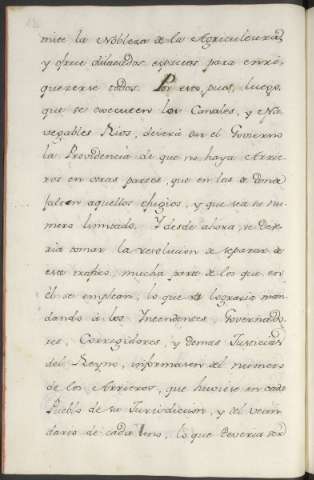 mite la Nobleza de la Agricultura,
y ofrece dilatados espacios para enri-
quezerse todos. Por esto pues, luego
que se executen los Canales, y Na-
vegables Rios, deverá dar el Governo
la Providencia de que no haya Arrie-
ros en otras partes, que en las donde
falten aquellos
y que sea su nu-
mero limitado. Y desde ahora, se deve-
ria tomar la resolucion de separar de
este trafico, mucha parte de los que en
él se emplean, lo que se lograria man-
dando á los Intendentes, Governado-
res, Corregidores, y demas Justicias
del Reyno, informasen del numero
de los Arrieros, que huviese en cada
Pueblo de su Jurisdiccion, y del vecin-
dario de cada uno, lo que deveria ser